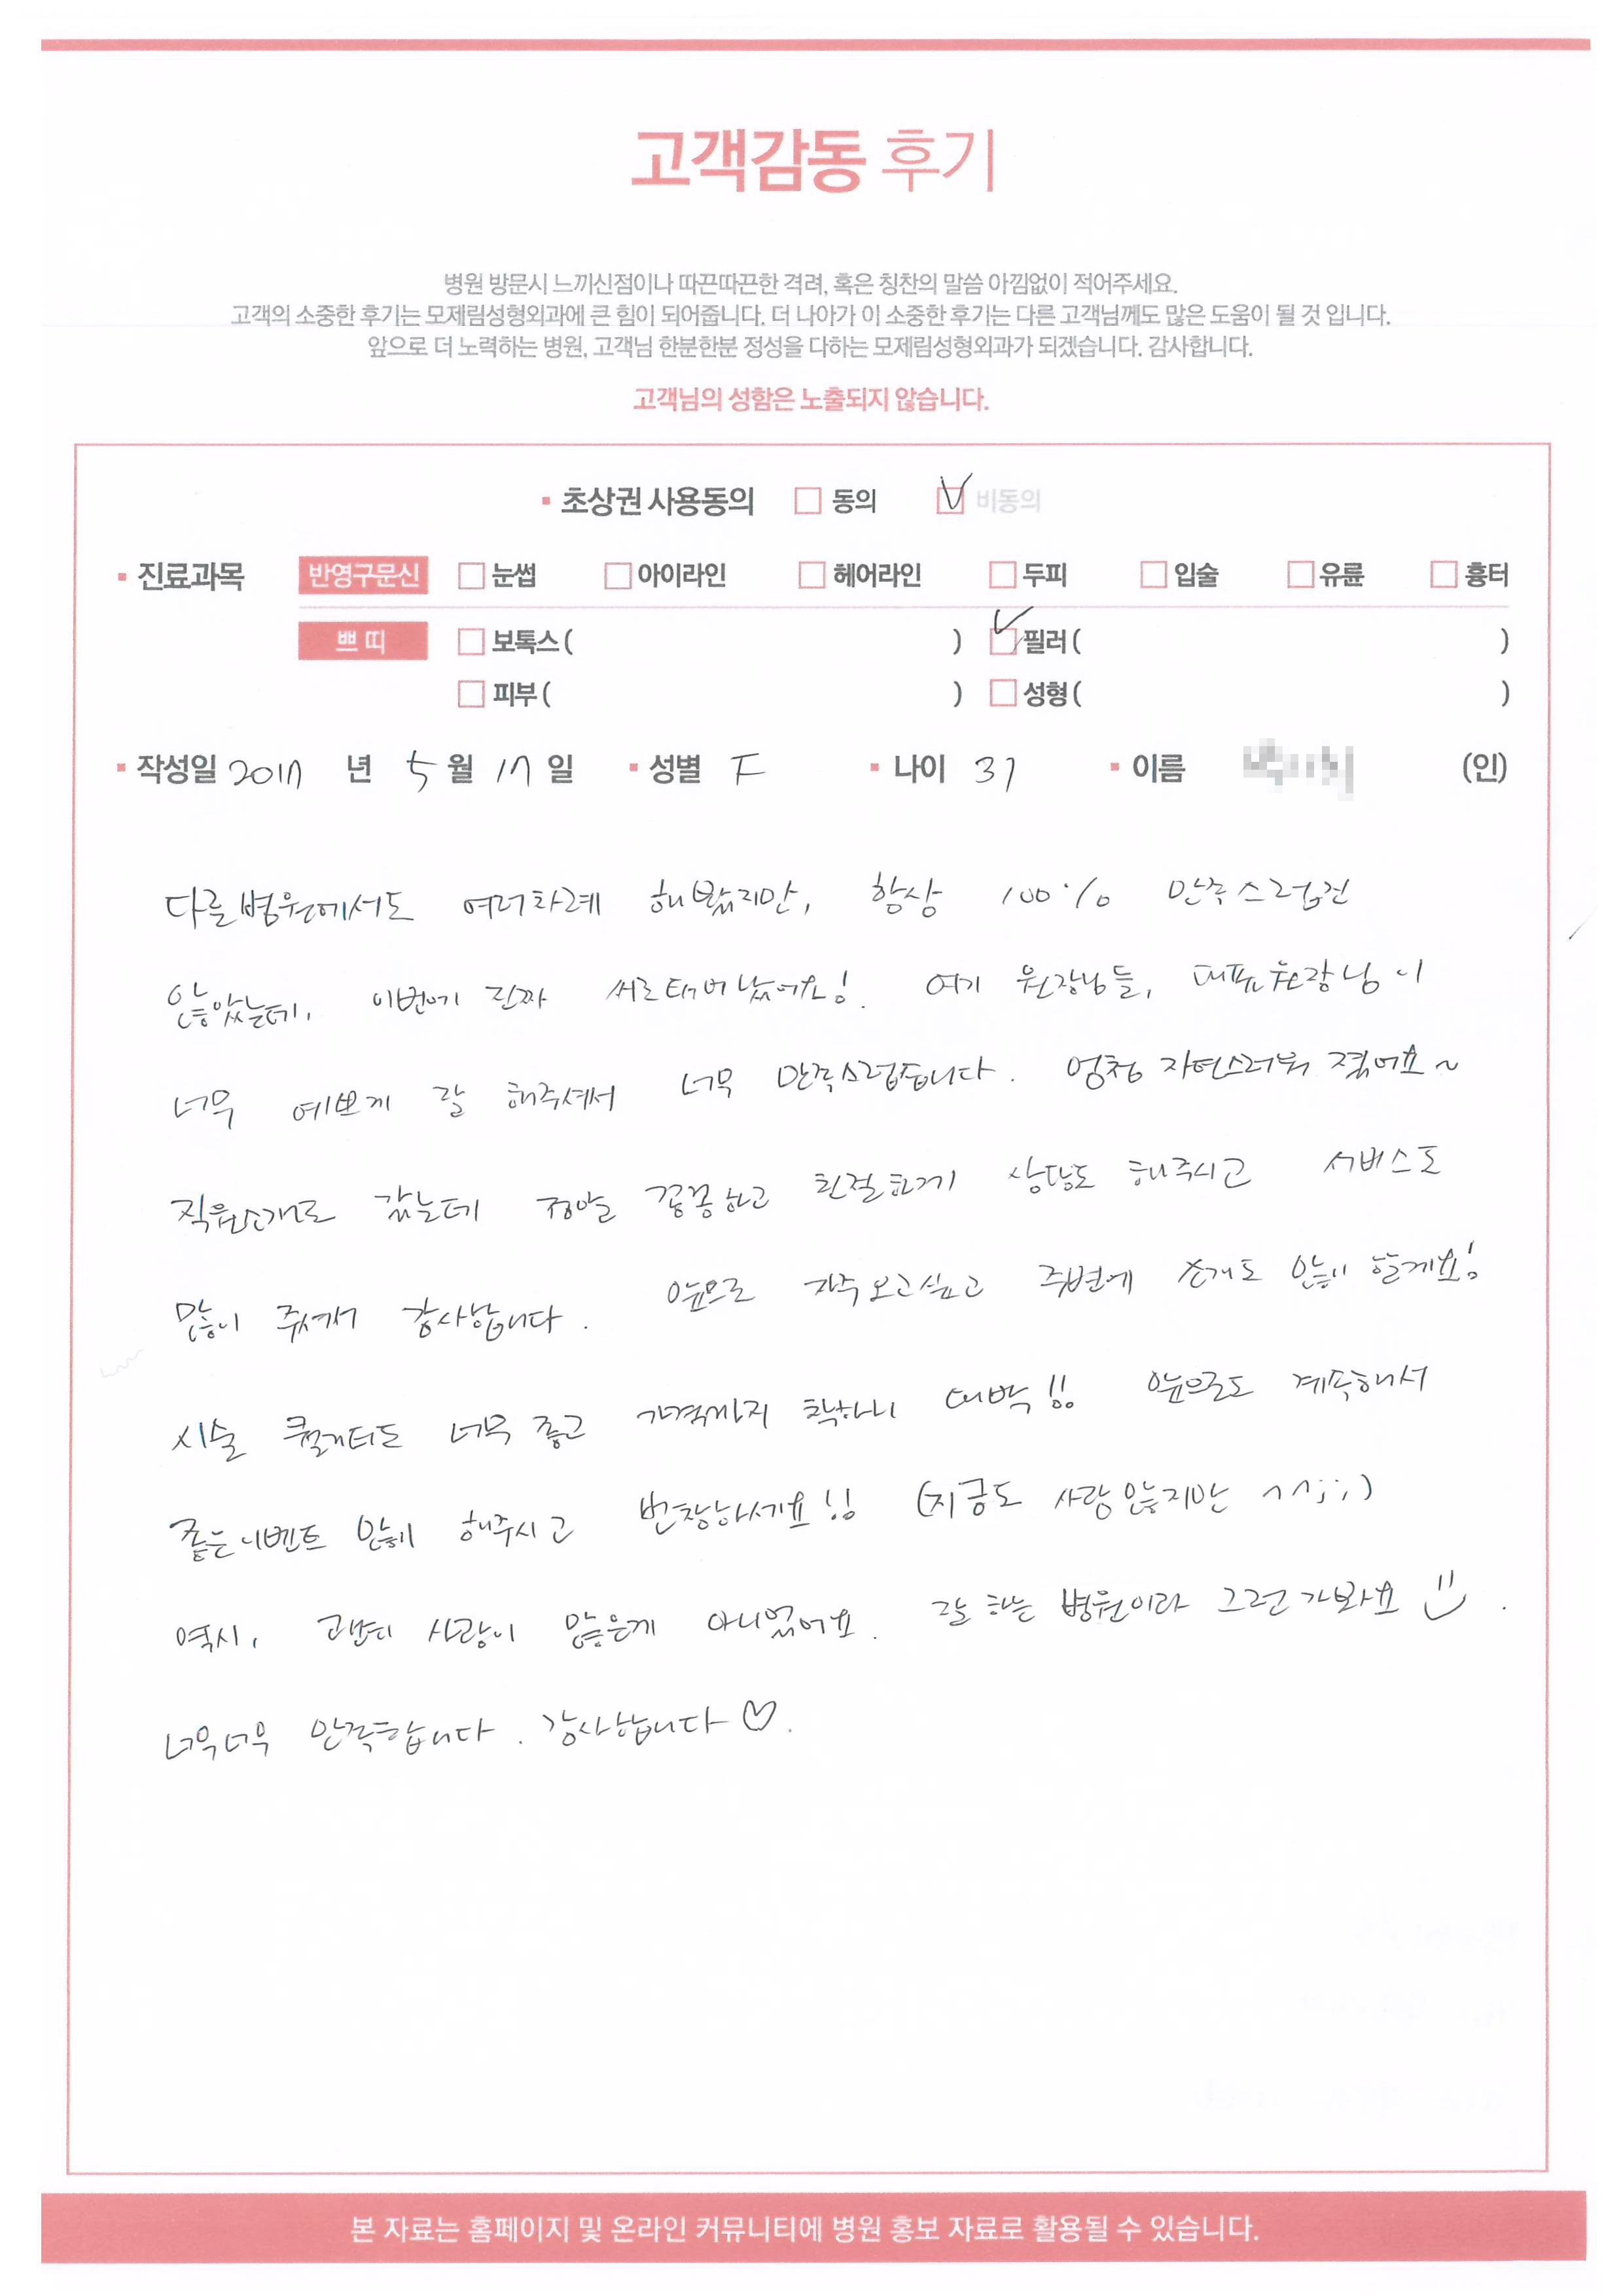 고객감동 후기
병원 방문시 느끼신점이나 따끈따끈한 격려, 혹은 칭찬의 말씀 아낌없이 적어주세요.
고객의 소중한 후기는 모제림성형외과에 큰 힘이 되어줍니다. 더 나아가 이 소중한 후기는 다른 고객님께도 많은 도움이 될 것 입니다.
앞으로 더 노력하는 병원, 고객님 한분한분 정성을 다하는 모제림성형외과가 되겠습니다. 감사합니다.
고객님의 성함은 노출되지 않습니다.
초상권 사용동의 동의 비동의
진료과목 반영구문신 눈썹 아이라인 헤어라인 두피 입술 유륜 흉터
쁘띠 보톡스 ( ) 필러 ( )
피부 ( ) 성형 ( )
작성일 2017 년 5 월 17 일 성별 F 나이 37 이름 (인)
다른병원에서도 여러차례 해봤지만, 항상 100% 만족스럽진
않았는데, 이번에 진짜 새로태어났어요! 여기 원장님들, 대표원장님이
너무 예쁘게 잘 해주셔서 너무 만족스럽습니다. 엄청 자연스러워 졌어요~
직원소개로 갔는데 정말 꼼꼼하고 친절하게 상담도 해주시고 서비스도
많이 줘서 감사합니다. 앞으로 자주오고싶고 주변에 소개도 많이 할게요!
시술 퀄리티도 너무 좋고 가격까지 착하니 대박!! 앞으로도 계속해서
좋은이벤트 많이 해주시고 번창하세요!! (지금도 사람많지만 ^^;;)
역시, 괜히 사람이 많은게 아니었어요. 잘 하는 병원이라 그런가봐요 .
너무너무 만족합니다. 감사합니다♡.
본 자료는 홈페이지 및 온라인 커뮤니티에 병원 홍보 자료로 활용될 수 있습니다.